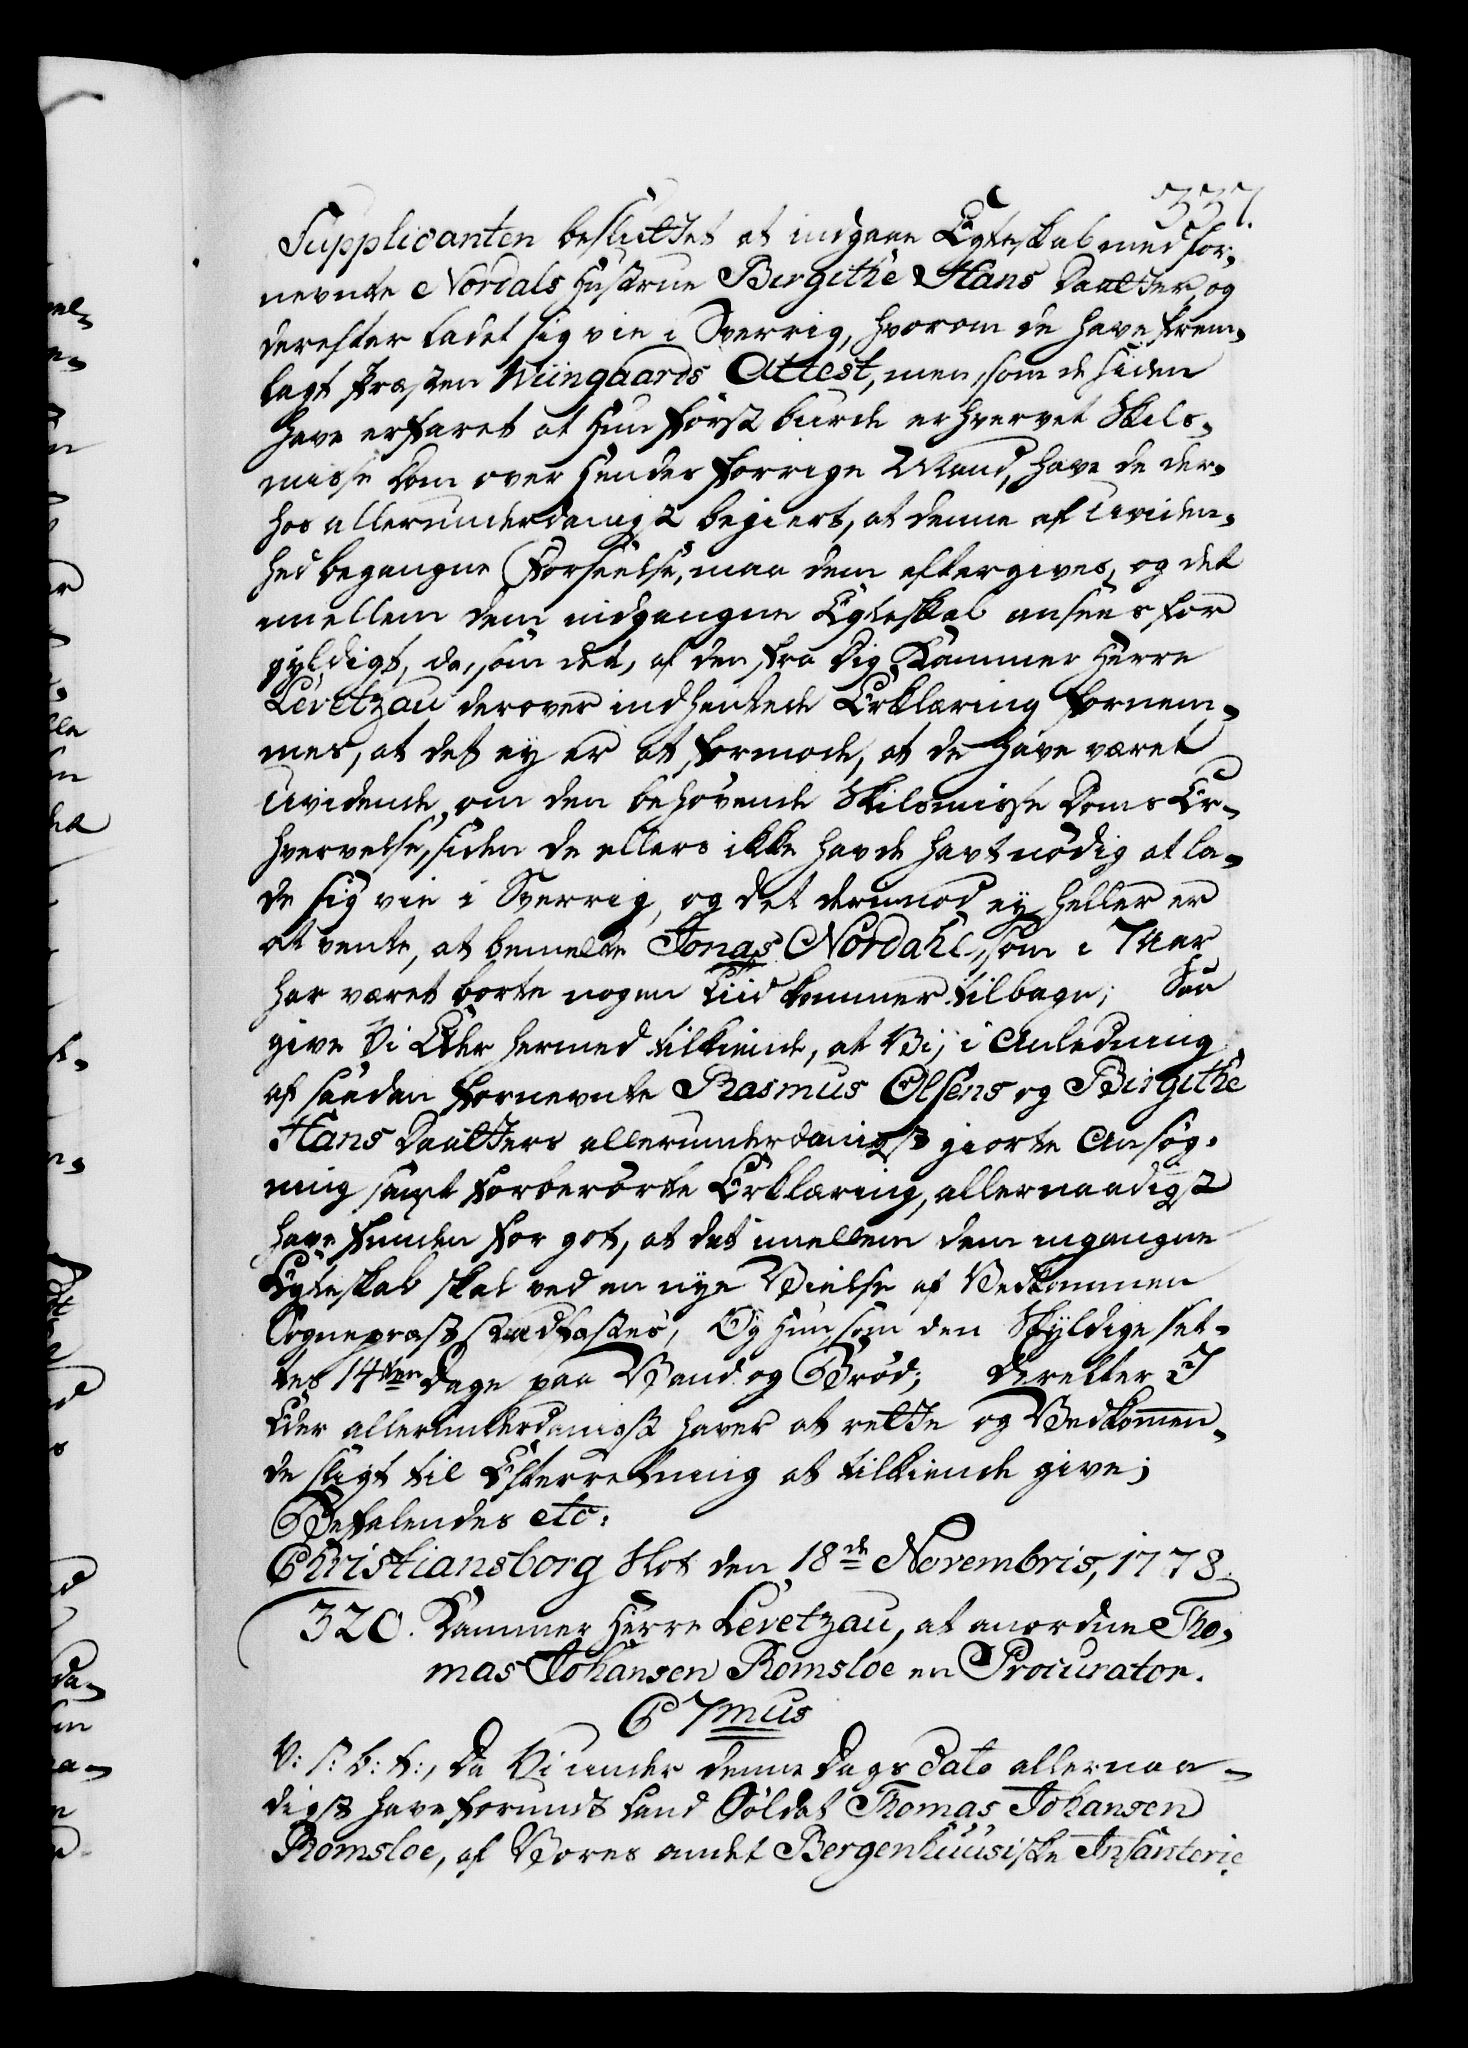 337.
Supplicanten besluttet at indgaae Egteskab med for,,
nevnte Nordals Hustrue Birgithe Hans Daatter, og
derefter ladet sig vie i Sverrig, hvorom de have frem,,
lagt Præsten Wiingaards Attest, men, som de siden
have erfaret at hun først burde erhvervet Skils,,
misse Dom over hendes forrige Mand, have de der,,
hos allerunderdanigst begiert, at denne af Uviden,,
hed begangne Forseelse, maa dem eftergives, og det
imellem dem indgangne Egteskab ansees for
gyldigt, da, som det, af den fra Dig Kammer Herre
Levetzau derover indhentede Erklæring fornem,,
mes, at det ey er at formode, at de have været
Uvidende, om den behövende Skilsmisse Doms Er,,
hvervelse, siden de ellers ikke havde havt nödig at la,,
de sig vie i Sverrig, og det derimod ey heller er
at vente, at bemelte Jonas Nordahl, som i 7 Aar
har været borte nogen Tiid kommer tilbage; Saa
give Vi Eder hermed tilkiende, at Vi, i Anledning
af saadan fornevnte Rasmus Olsens og Birgithe
Hans Daatters allerunderdanigst giorte Ansög,,
ning samt forberörte Erklæring, allernaadigst
have funden for got, at det imellem dem ingangne
Egteskab skal ved en nye Vielse af Vedkommen
Sognepræst stadfæstes, Og hun, som den Skyldige set,,
tes 14ten Dage paa Vand og Bröd; derefter I
Eder allerunderdanigst haver at rette og Vedkommen,,
de sligt til Efterretning at tilkiende give;
Befalendes etc:
Christiansborg Slot den 18de Novembris, 1778.
320. Kammer Herre Levetzau, at anordne Tho,,
mas Johansen Romsloe en Procurator.
C 7mus
V: S: b: t:, Da Vi under denne Dags Dato allernaa,,
digst have forundt Land Soldat Thomas Johansen
Romsloe, af Vores andet Bergenhuusiske Infanterie